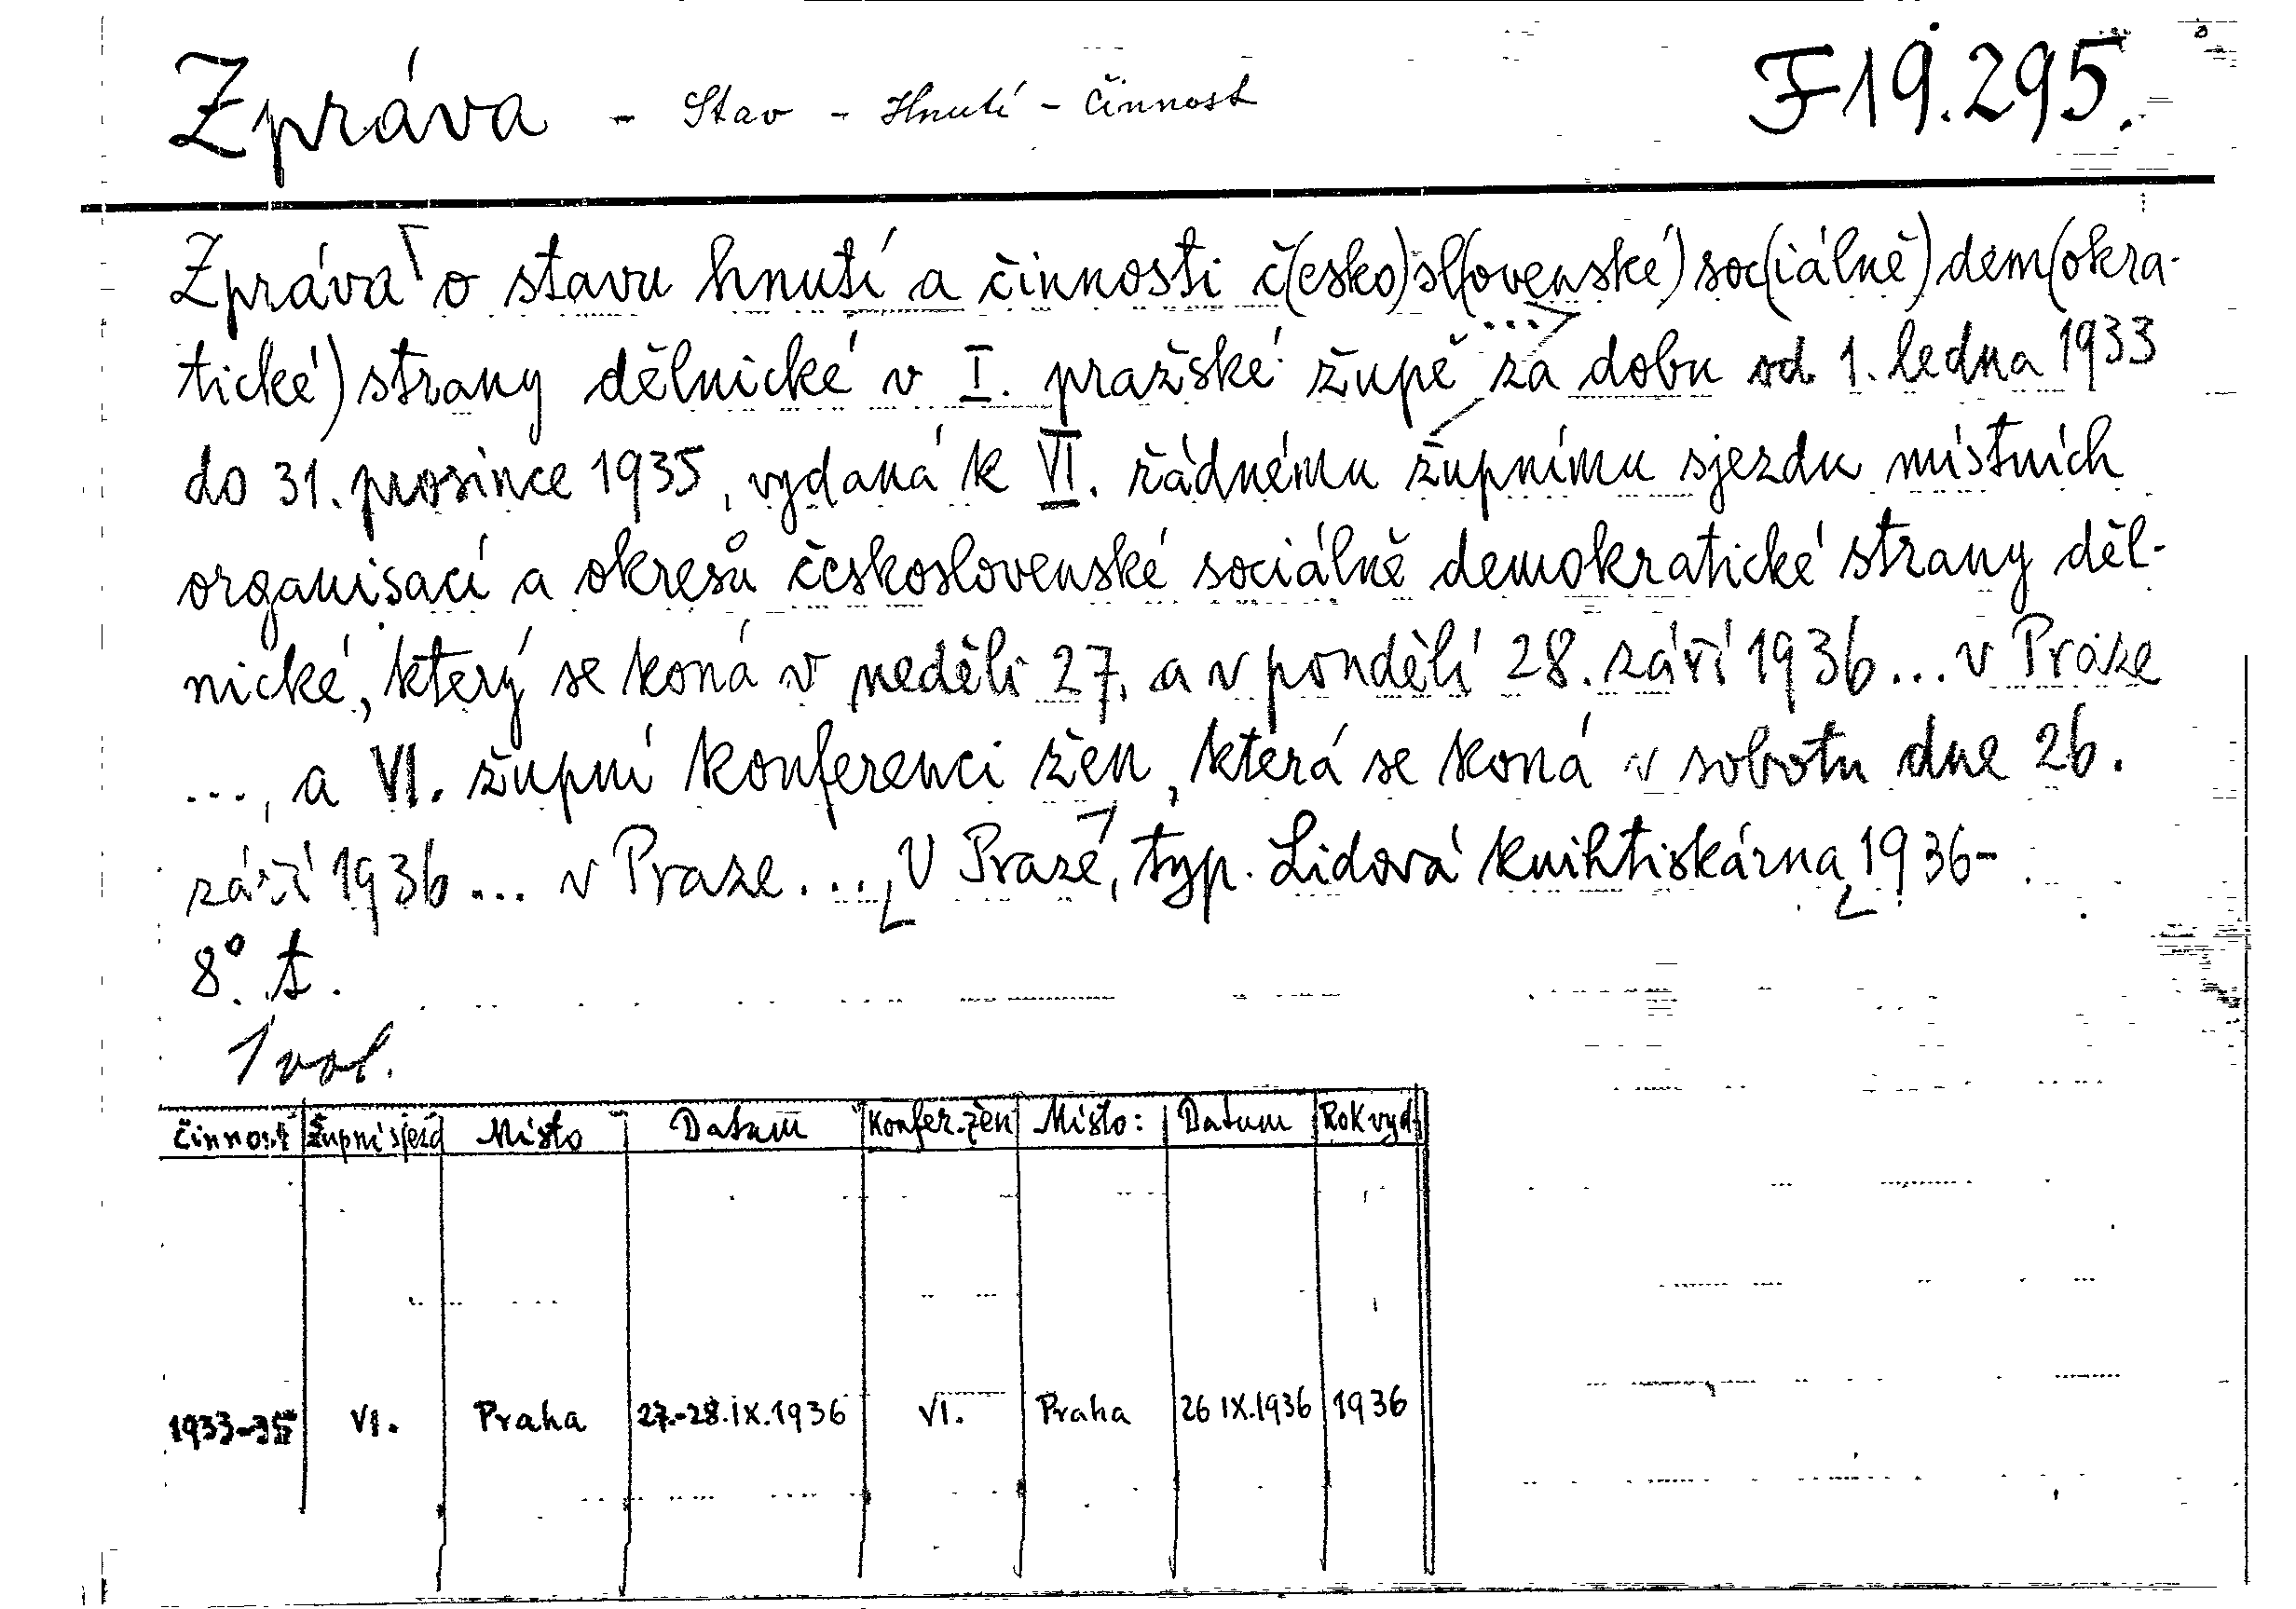 Zpráva - Stav - Hnutí - Činnost F 19.295.
Zpráva o stavu hnutí a činnosti č(esko)sl(ovenské) soc(iálně) dem(okra-
tické) strany dělnické v I. pražské župě ... za dobu od 1. ledna 1933
do 31. prosince 1935, vydaná k VI. řádnému župnímu sjezdu místních
organisací a okresů československé sociálně demokratické strany děl-
nické, který se koná v neděli 27. a v pondělí 28. září 1936 ... v Praze
..., a VI. župní konferenci žen, která se koná v sobotu dne 26.
září 1936 ... v Praze ..., V Praze, typ. Lidová knihtiskárna, 1936-
8°. t.
1 vol.
Činnost Župní sjezd Místo Datum Konfer. žen Místo: Datum Rok vyd.
1933-35 VI. Praha 27.-28.IX.1936 VI. Praha 26 IX.1936 1936